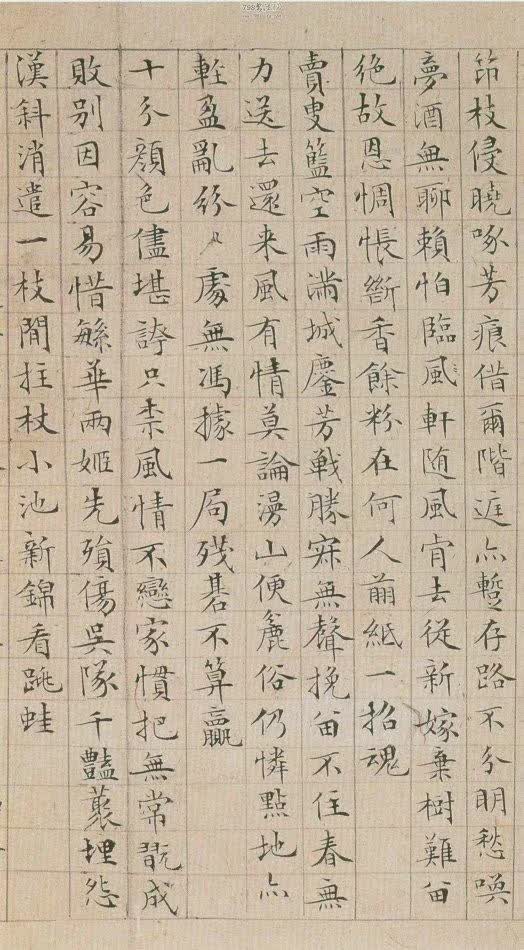 筇枝侵曉啄芳痕借爾階庭亦暫存路不分明愁喚
夢酒無聊賴怕臨風軒随風肯去從新嫁棄樹難留
絶故恩惆悵斷香餘粉在何人翦紙一招魂
賣叟籃空雨满城鏖芳戦勝寂無聲挽留不住春無
力送去還来風有情莫論漫山便麄俗仍憐點地亦
軽盈亂紛〻處無馮據一局殘碁不算贏
十分顔色儘堪誇只柰風情不戀家慣把無常翫成
敗别因容易惜繁華兩姬先殞傷吳隊千豔叢埋怨
漢斜消遣一枝閒拄杖小池新錦看跳蛙